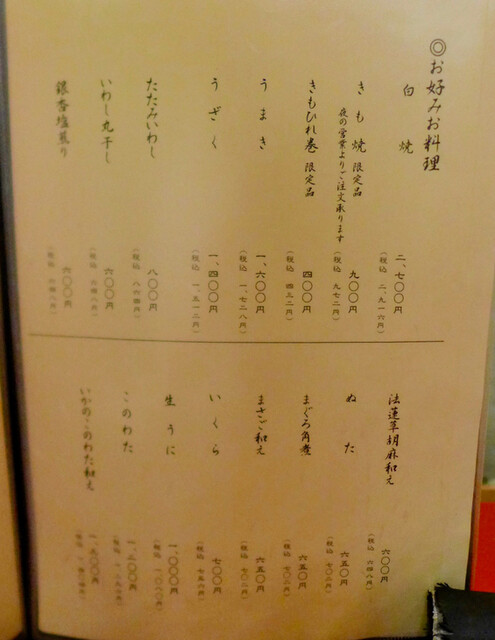 ◎お好みお料理
白焼
二、七〇〇円
（税込 二、九一六円）
きも焼 限定品
夜の営業よりご注文承ります
九〇〇円
（税込 九七二円）
きもひれ巻 限定品
四〇〇円
（税込 四三二円）
うまき
一、六〇〇円
（税込 一、七二八円）
うざく
一、四〇〇円
（税込 一、五一二円）
たたみいわし
八〇〇円
（税込 八六四円）
いわし丸干し
六〇〇円
（税込 六四八円）
銀杏塩煎り
六〇〇円
（税込 六四八円）
法蓮草胡麻和え
六〇〇円
（税込 六四八円）
ぬた
六五〇円
（税込 七〇二円）
まぐろ角煮
六五〇円
（税込 七〇二円）
まさご和え
六五〇円
（税込 七〇二円）
いくら
七〇〇円
（税込 七五六円）
生うに
一、〇〇〇円
（税込 一、〇八〇円）
このわた
一、二〇〇円
（税込 一、二九六円）
いかのこのわた和え